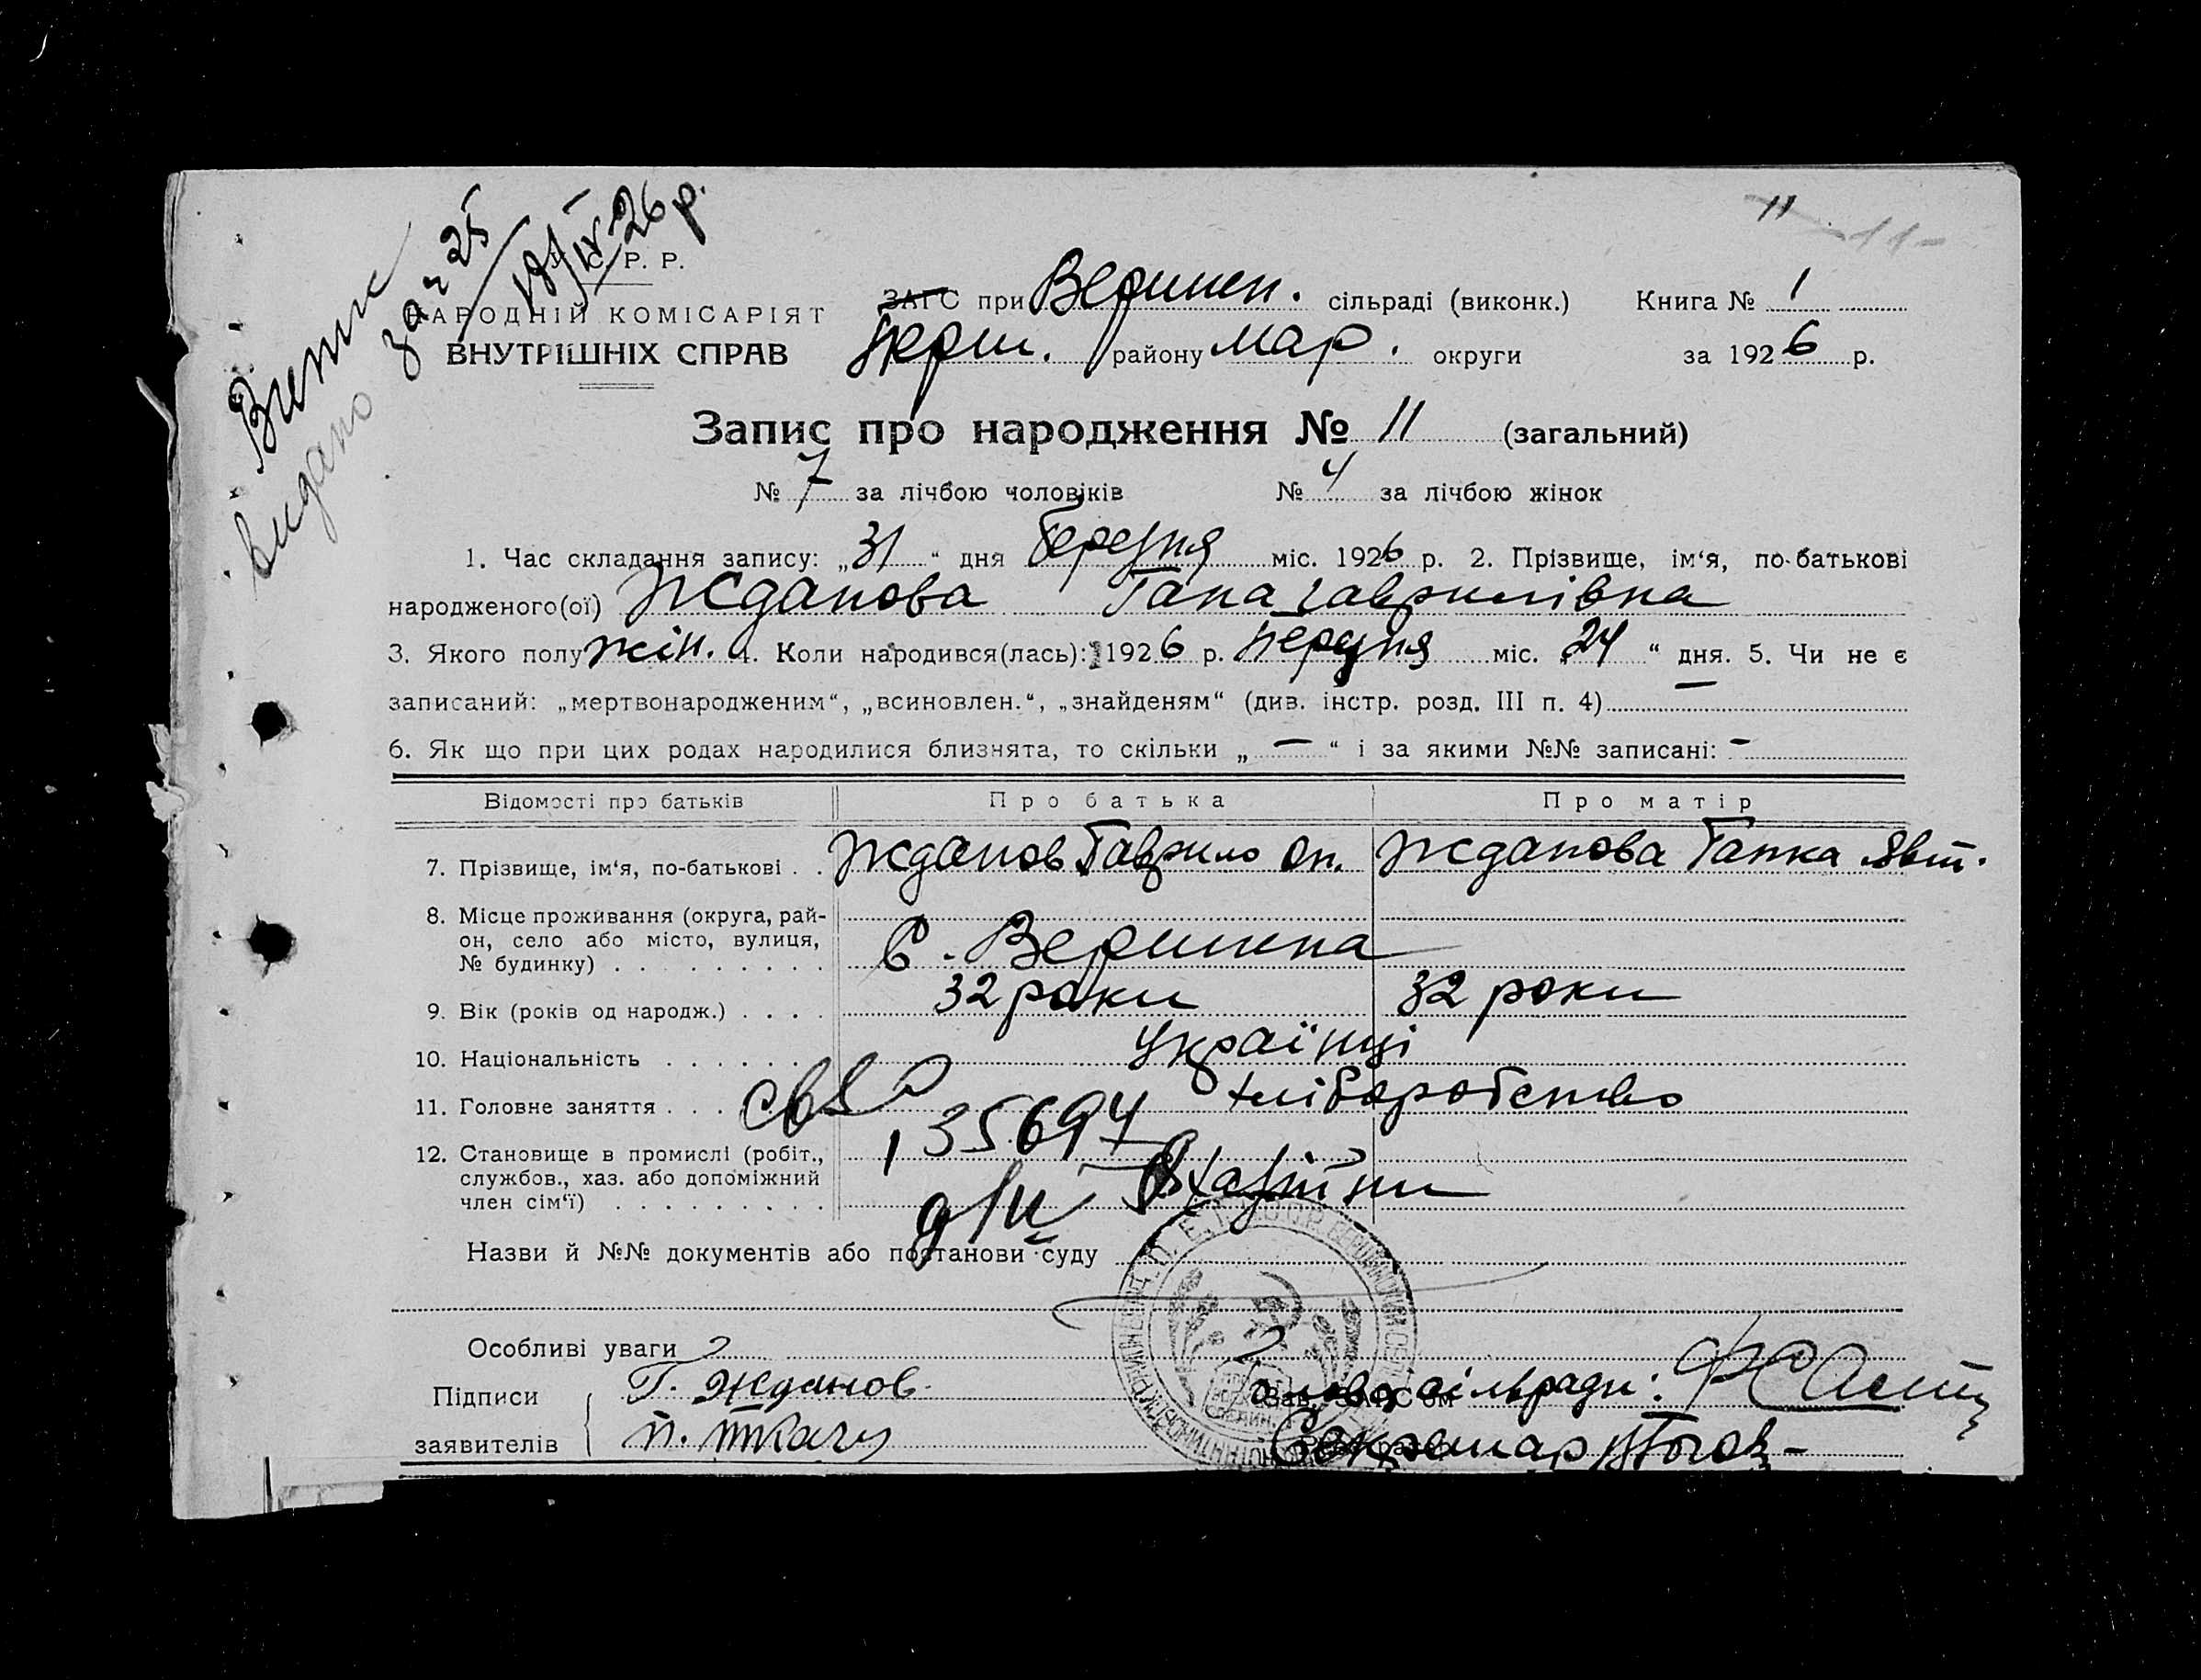 11 -11-
Витяг видано за ч 25
С. Р. Р.
НАРОДНІЙ КОМІСАРІЯТ
ВНУТРІШНІХ СПРАВ
ЗАГС при Вершин. сільраді (виконк.) Книга № 1
району Мар. округи за 1926 р.
Запис про народження № 11 (загальний)
№ 7 за лічбою чоловіків № 4 за лічбою жінок
1. Час складання запису: „31“ дня березня міс. 1926 р. 2. Прізвище, ім‘я, по-батькові
народженого(ої) Жданова Гана Гаврилівна
3. Якого полу жін. 4. Коли народився(лась): 1926 р. березня міс. „24“ дня. 5. Чи не є
записаний: „мертвонародженим“, „всиновлен.“, „знайденям“ (див. інстр. розд. III п. 4) —
6. Як що при цих родах народилися близнята, то скільки „ — “ і за якими №№ записані: -
Відомості про батьків Про батька Про матір
7. Прізвище, ім‘я, по-батькові . . Жданов Гаврило Оп. Жданова Гапка Явт.
8. Місце проживання (округа, рай-
он, село або місто, вулиця,
№ будинку) . . . . . . . . . С. Вершина
9. Вік (років од народж.) . . . . 32 роки 32 роки
10. Національність . . . . . . . Українці
11. Головне заняття . . . хліборобство
135694
12. Становище в промислі (робіт.,
службов., хаз. або допоміжний
член сім‘ї) . . . . . . . . . Хазяїни
Назви й №№ документів або постанови суду
Особливі уваги
Підписи Г. Жданов Голова сільради:
заявителів П. Ткач Секретар